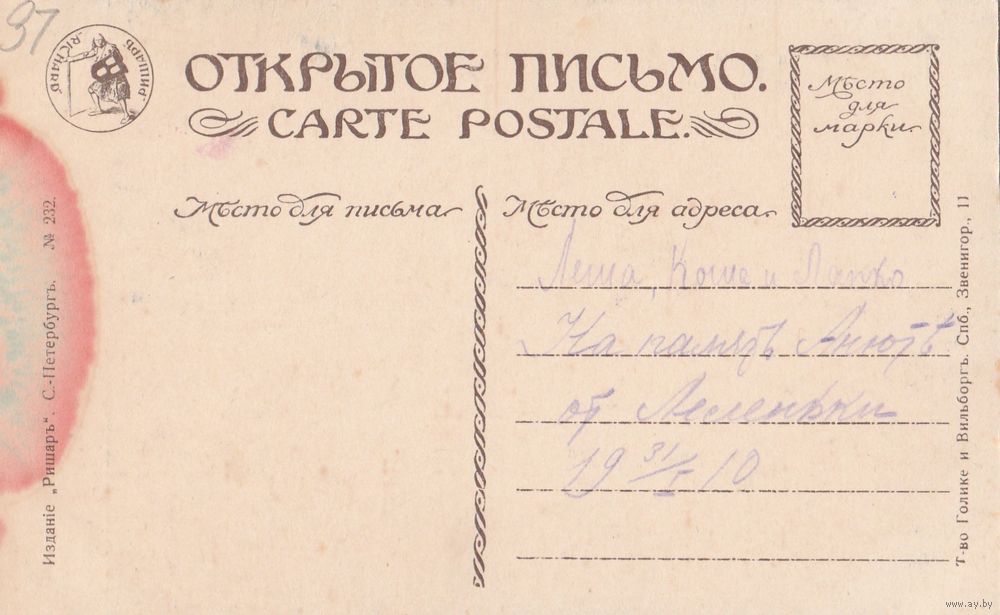 97
„RICHARD“ „РИШАРЪ“
ОТКРЫТОЕ ПИСЬМО.
CARTE POSTALE.
Мѣсто
для
марки
Мѣсто для письма
Мѣсто для адреса
Леша, Коше и
На память Анютѣ
от Лёленьки
19 31/I 10
Изданіе „Ришаръ“. С.-Петербургъ. № 232.
Т-во Голике и Вильборгъ. Спб., Звенигор., 11
www.ay.by